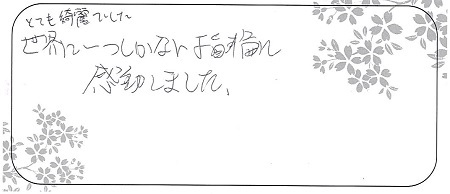 とても綺麗でした
世界に一つしかない指輪に
感動しました。